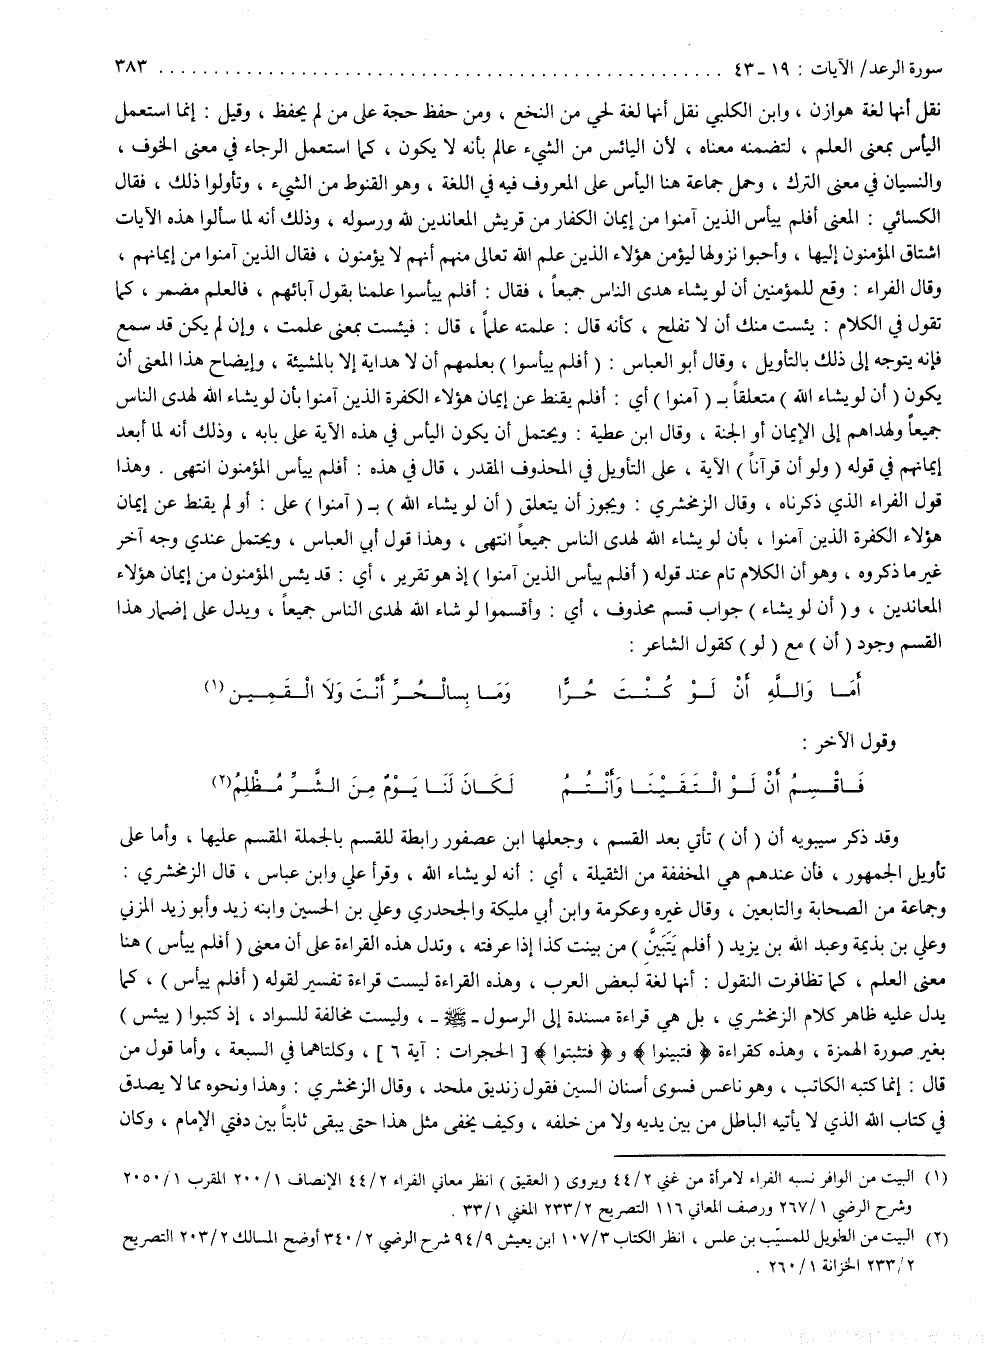 سورة الرعد/ الآيات : ١٩ ـ ٤٣ ........................................................ ٣٨٣
نقل أنها لغة هوازن ، وابن الكلبي نقل أنها لغة لحي من النخع ، ومن حفظ حجة على من لم يحفظ ، وقيل : إنما استعمل
اليأس بمعنى العلم ، لتضمنه معناه ، لأن اليائس من الشيء عالم بأنه لا يكون ، كما استعمل الرجاء في معنى الخوف ،
والنسيان في معنى الترك ، وحمل جماعة هنا اليأس على المعروف فيه في اللغة ، وهو القنوط من الشيء ، وتأولوا ذلك ، فقال
الكسائي : المعنى أفلم ييأس الذين آمنوا من إيمان الكفار من قريش المعاندين لله ورسوله ، وذلك أنه لما سألوا هذه الآيات
اشتاق المؤمنون إليها ، وأحبوا نزولها ليؤمن هؤلاء الذين علم الله تعالى منهم أنهم لا يؤمنون ، فقال الذين آمنوا من إيمانهم ،
وقال الفراء : وقع للمؤمنين أن لو يشاء هدى الناس جميعاً ، فقال : أفلم ييأسوا علمنا بقول آبائهم ، فالعلم مضمر ، كما
تقول في الكلام : يئست منك أن لا تفلح ، كأنه قال : علمته علماً ، قال : فيئست بمعنى علمت ، وإن لم يكن قد سمع
فإنه يتوجه إلى ذلك بالتأويل ، وقال أبو العباس : ( أفلم ييأسوا ) بعلمهم أن لا هداية إلا بالمشيئة ، وإيضاح هذا المعنى أن
يكون ( أن لو يشاء الله ) متعلقاً بـ ( آمنوا ) أي : أفلم يقنط عن إيمان هؤلاء الكفرة الذين آمنوا بأن لو يشاء الله لهدى الناس
جميعاً ولهداهم إلى الإيمان أو الجنة ، وقال ابن عطية : ويحتمل أن يكون اليأس في هذه الآية على بابه ، وذلك أنه لما أبعد
إيمانهم في قوله ( ولو أن قرآناً ) الآية ، على التأويل في المحذوف المقدر ، قال في هذه : أفلم ييأس المؤمنون انتهى . وهذا
قول الفراء الذي ذكرناه ، وقال الزمخشري : ويجوز أن يتعلق ( أن لو يشاء الله ) بـ ( آمنوا ) على : أو لم يقنط عن إيمان
هؤلاء الكفرة الذين آمنوا ، بأن لو يشاء الله لهدى الناس جميعاً انتهى ، وهذا قول أبي العباس ، ويحتمل عندي وجه آخر
غير ما ذكروه ، وهو أن الكلام تام عند قوله ( أفلم ييأس الذين آمنوا ) إذ هو تقرير ، أي : قد يئس المؤمنون من إيمان هؤلاء
المعاندين ، و ( أن لو يشاء ) جواب قسم محذوف ، أي : وأقسموا لو شاء الله لهدى الناس جميعاً ، ويدل على إضمار هذا
القسم وجود ( أن ) مع ( لو ) كقول الشاعر :
أَمَـا وَاللَّهِ أَنْ لَـوْ كُـنْـتَ حُـرًّا     وَمَـا بِـالْـحُـرِّ أَنْتَ وَلَا الْـقَـمِـيـن (١)
وقول الآخر :
فَـاقْـسِـمُ أَنْ لَـوْ الْـتَـقَـيْـنَـا وَأَنْـتُـمُ     لَـكَـانَ لَنَـا يَـوْمٌ مِـنَ الـشَّـرِّ مُـظْلِمُ (٢)
وقد ذكر سيبويه أن ( أن ) تأتي بعد القسم ، وجعلها ابن عصفور رابطة للقسم بالجملة المقسم عليها ، وأما على
تأويل الجمهور ، فأن عندهم هي المخففة من الثقيلة ، أي : أنه لو يشاء الله ، وقرأ علي وابن عباس ، قال الزمخشري :
وجماعة من الصحابة والتابعين ، وقال غيره وعكرمة وابن أبي مليكة والجحدري وعلي بن الحسين وابنه زيد وأبو زيد المزني
وعلي بن بذيمة وعبد الله بن يزيد ( أفلم يَتَبَيَّنِ ) من بينت كذا إذا عرفته ، وتدل هذه القراءة على أن معنى ( أفلم ييأس ) هنا
معنى العلم ، كما تظافرت النقول : أنها لغة لبعض العرب ، وهذه القراءة ليست قراءة تفسير لقوله ( أفلم ييأس ) ، كما
يدل عليه ظاهر كلام الزمخشري ، بل هي قراءة مسندة إلى الرسول ـ ﷺ ـ ، وليست مخالفة للسواد ، إذ كتبوا ( ييئس )
بغير صورة الهمزة ، وهذه كقراءة ﴿ فتبينوا ﴾ و ﴿ فتثبتوا ﴾ [ الحجرات : آية ٦ ] ، وكلتاهما في السبعة ، وأما قول من
قال : إنما كتبه الكاتب ، وهو ناعس فسوى أسنان السين فقول زنديق ملحد ، وقال الزمخشري : وهذا ونحوه مما لا يصدق
في كتاب الله الذي لا يأتيه الباطل من بين يديه ولا من خلفه ، وكيف يخفى مثل هذا حتى يبقى ثابتاً بين دفتي الإمام ، وكان
(١) البيت من الوافر نسبه الفراء لامرأة من غني ٤٤/٢ ويروى ( العقيق ) انظر معاني الفراء ٤٤/٢ الإنصاف ٢٠٠/١ المقرب ٢٠٥٠/١
وشرح الرضي ٢٦٧/١ ورصف المعاني ١١٦ التصريح ٢٣٣/٢ المغني ٣٣/١ .
(٢) البيت من الطويل للمسيّب بن علس ، انظر الكتاب ١٠٧/٣ ابن يعيش ٩٤/٩ شرح الرضي ٣٤٠/٢ أوضح المسالك ٢٠٣/٢ التصريح
٢٣٣/٢ الخزانة ٢٦٠/١ .